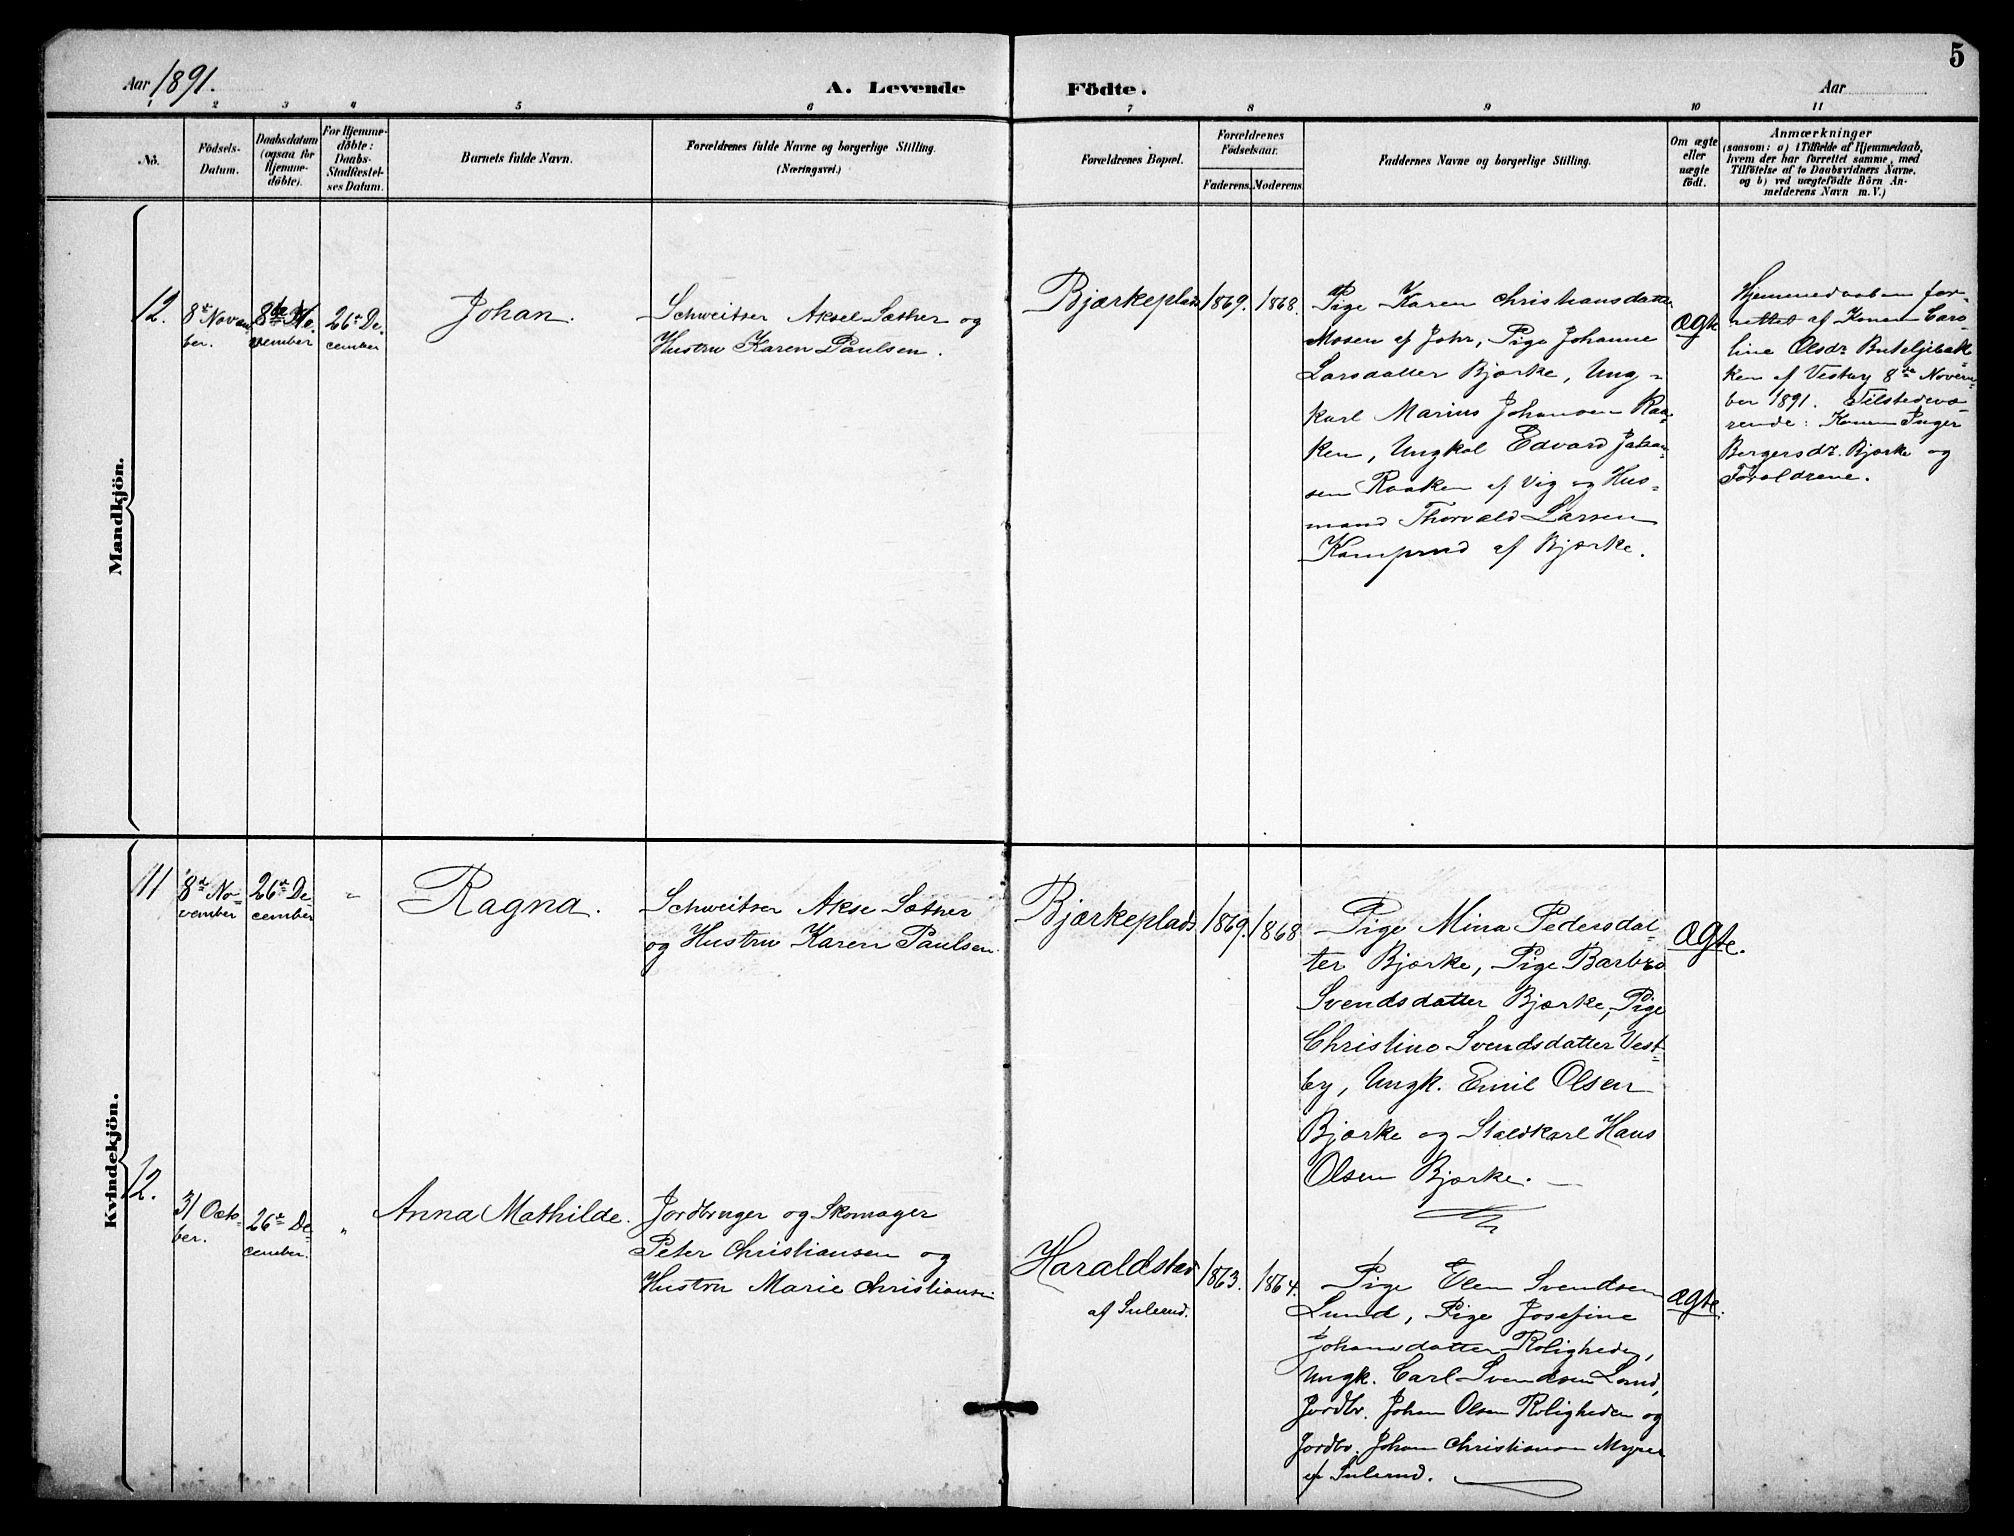 5
Aar 1891.
A. Levende
Födte.
Aar
1 2 3 4 5 6 7 8 9 10 11
No.
Födsels-
Datum.
Daabsdatum
(ogsaa for
Hjemme-
döbte).
For Hjemme-
döbte:
Daabs-
Stadfæstel-
ses Datum.
Barnets fulde Navn.
Forældrenes fulde Navne og borgerlige Stilling.
(Næringsvei.)
Forældrenes Bopæl.
Forældrenes
Födselsaar.
Faderens. Moderens.
Faddernes Navne og borgerlige Stilling.
Om ægte
eller
uægte
födt.
Anmærkninger
(saasom: a) i Tilfælde af Hjemmedaab,
hvem der har forrettet samme, med
Tilföielse af to Daabsvidners Navne.
og b) ved uægtefödte Börn An-
melderens Navn m. V.)
Mandkjön.
12.
8de Novem
ber.
8de No.
vember
26de De.
cember
Johan.
Schweitser Aksel Sæther og
Hustru Karen Paulsen.
Bjærkeplads
1869.
1868.
Pige Karen Christiansdatter
Mosen af Johr, Pige Johanne
Larsdatter Bjørke, Ung-
karl Marius Johansen Raa-
ken, Ungkal Edvard Johan-
sen Raaken af Vig og Hus-
mand Thorvald Larsen
Kamprud af Bjærke.
ægte
Hjemmedaaben for-
rettet af Konen Caro-
line Olsdr Buteljebak-
ken af Vestby 8de Novem-
ber 1891. Tilstedevæ-
rende: Konen Inger
Bergersdr. Bjørke og
Forældrene.
Kvindekjön.
11
8de No-
vember
26de De
cember
"
Ragna.
Schweitser Akse Sæther
og Hustru Karen Paulsen.
Bjærkeplads
1869.
1868
Pige Mina Pedersdat-
ter Bjærke, Pige Barbro
Svendsdatter Bjærke, Pige
Christine Svendsdatter Vest-
by, Ungk. Emil Olsen
Bjærke og Staldkarl Hans
Olsen Bjærke.
ægte.
12.
31 Octo-
ber.
26de De-
cember.
"
Anna Mathilde.
Jordbruger og Skomager
Peter Christiansen og
Hustru Marie Christiansen
Haraldstad
af Sulerud.
1863.
1864.
Pige Elen Svendsen
Lund, Pige Josefine
Johansdatter Roligheden,
Ungk. Carl Svendsen Lund,
Jordbr. Johan Olsen Roligheden og
Jordbr. Johan Christiansen Myrer
af Sulerud.
ægte.